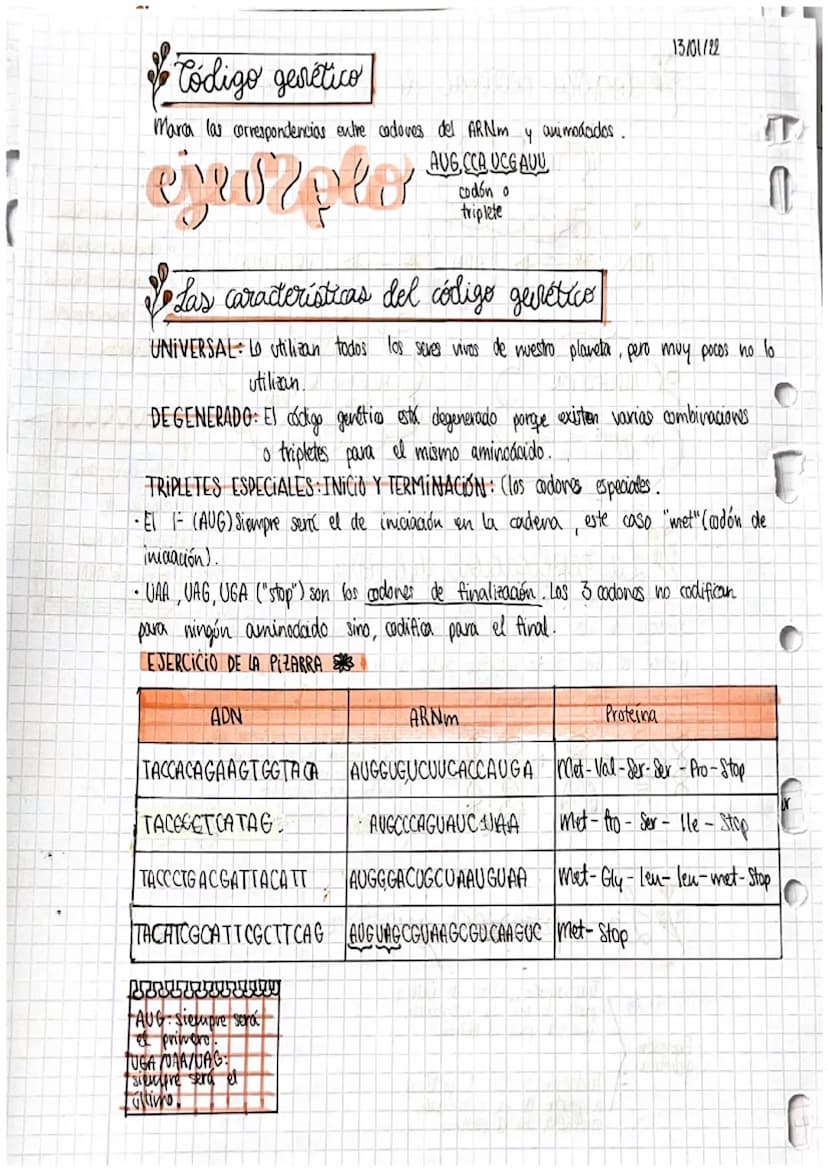 13/01/22
Código genético
Marca las correspondencias entre codones del ARNm y aminoácidos.
ejemplo
AUG,CCA,UCG AUU
codón o
triplete
Las características del código genético
UNIVERSAL: Lo utilizan todos los seres vivos de nuestro planeta, pero muy pocos no lo
utilizan.
DEGENERADO: El código genético está degenerado porqe existen varias combinaciones
o tripletes para el mismo aminoácido.
TRIPLETES ESPECIALES: INICIO Y TERMINACIÓN: (los codones especiales.
· El 1- (AUG) siempre será el de iniciación en la cadena, este caso "met" (codón de
iniciación).
· UAA, UAG, UGA ("stop") son los codones de finalización. Los 3 codones no codifican
para ningún aminoácido sino, codifica para el final.
EJERCICIO DE LA PIZARRA
ADN ARNm Proteína
TACCACAGAAGTGGTACA AUGGUGUCUUCACCAUGA Met-Val-Ser-Ser-Pro-Stop
AUGCCCAGUAUCUAA Met-Pro-Ser-Ile-Stop
TACCCTGACGATTACATT AUGGGACUGCUAAUGUAA Met-Gly-Leu-leu-met-Stop
TACATCGCATTCGCTTCAG AUGUAGCGUAAGCGUCAAGUC Met-Stop
AUG: siempre será
el primero.
UGA/UAA/UAG:
siempre será el
último.